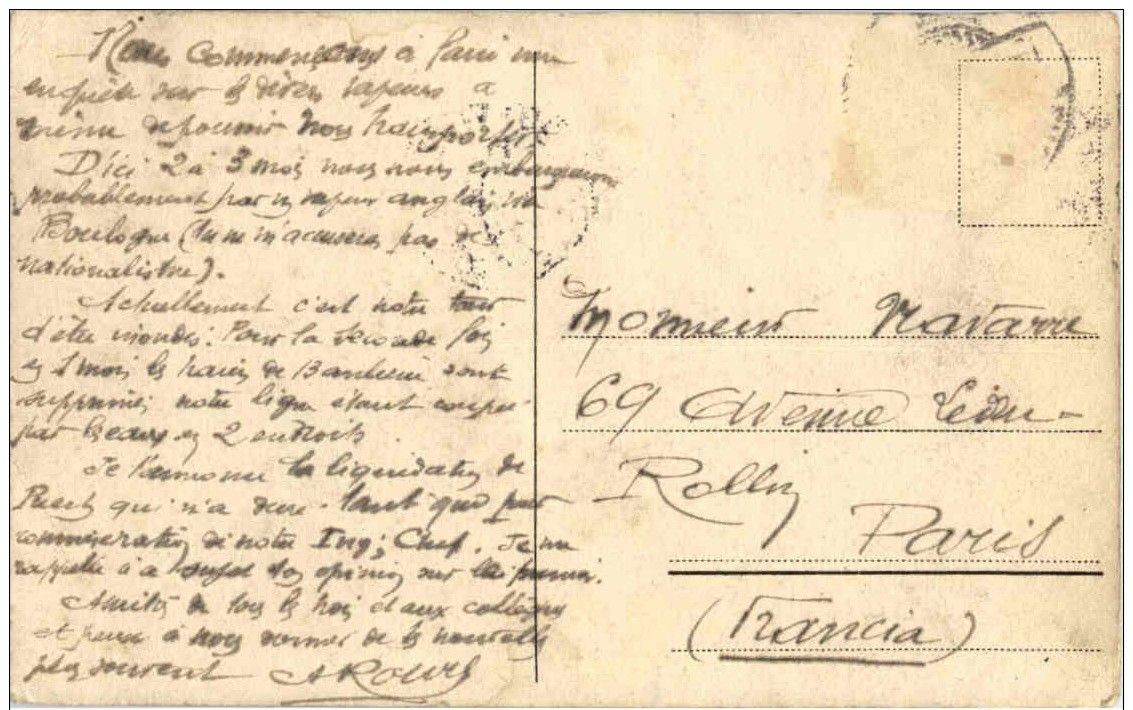 Nous commençons à faire une
enquête sur les divers vapeurs à
même de pouvoir nous transporter.
D'ici 2 à 3 mois nous nous embarquerons
probablement par un vapeur anglais, via
Boulogne (tu ne m'accuseras pas de
nationalisme).
Actuellement c'est notre tour
d'être inondés. Pour la seconde fois
en 1 mois les trains de Banlieue sont
supprimés notre ligne étant coupée
par les eaux en 2 endroits.
Je t'annonce la liquidation de
qui n'a duré tant que par
commisération de notre Ing; Chef. Je me
rappelle à ce sujet ton opinion sur
Amitiés de tous les trois et aux collègues
et pense à nous donner de tes nouvelles
plus souvent
Monsieur Navarre
69 Avenue Ledru-
Rollin
Paris
(Francia)